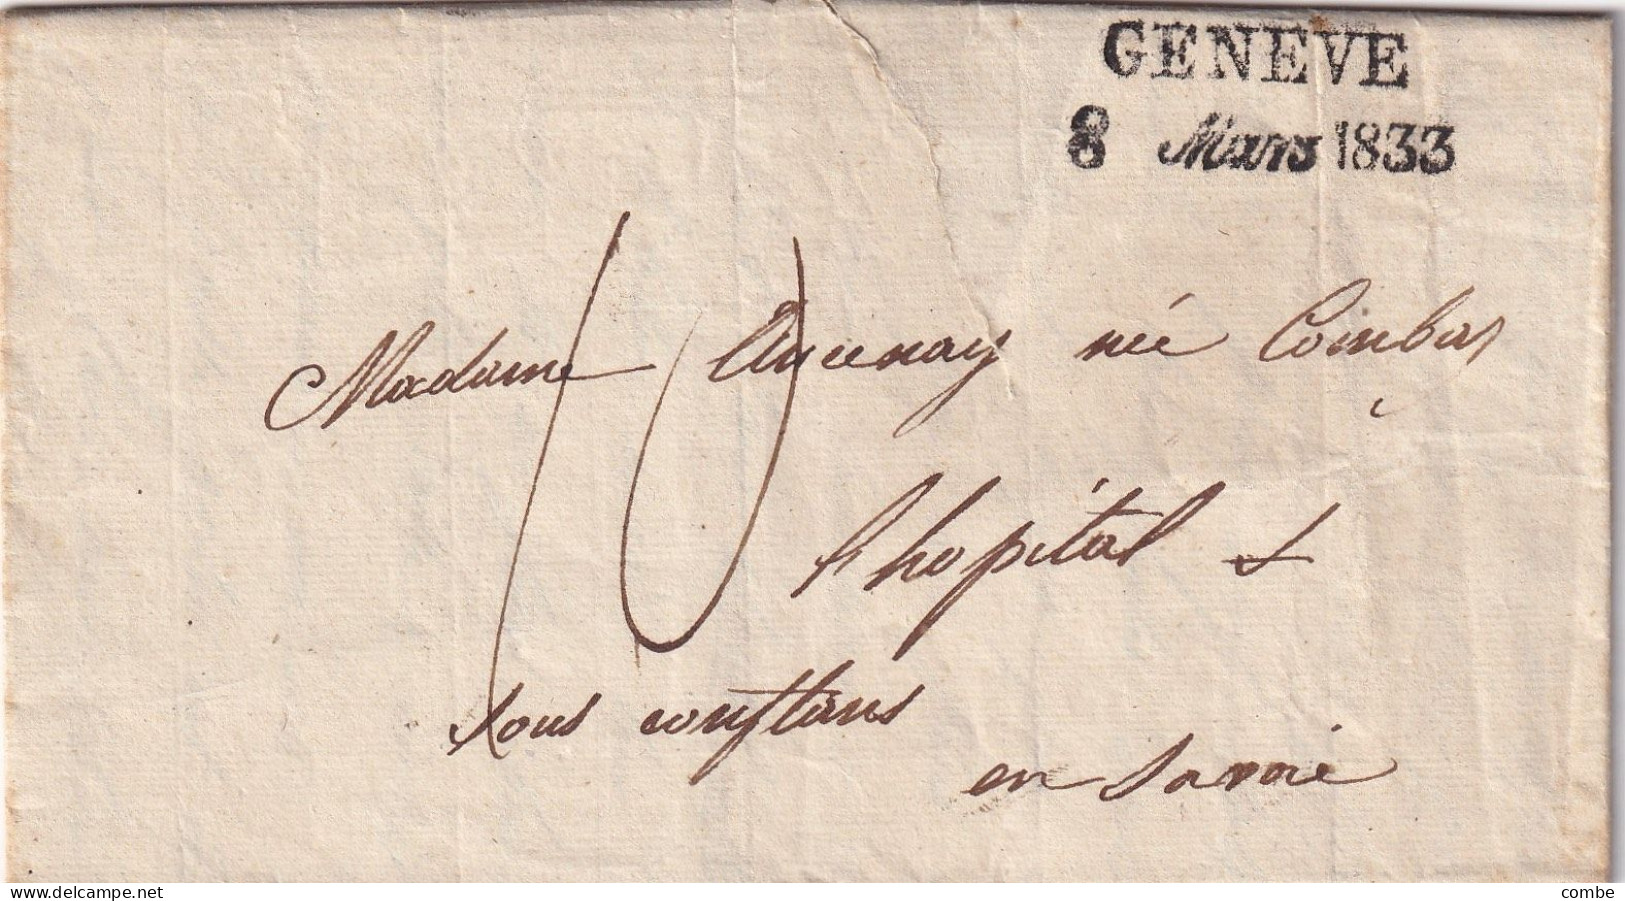 GENEVE
8 Mars 1833
10
Madame née
lhopital
sous conflans
en Savoie
www.delcampe.net
combe